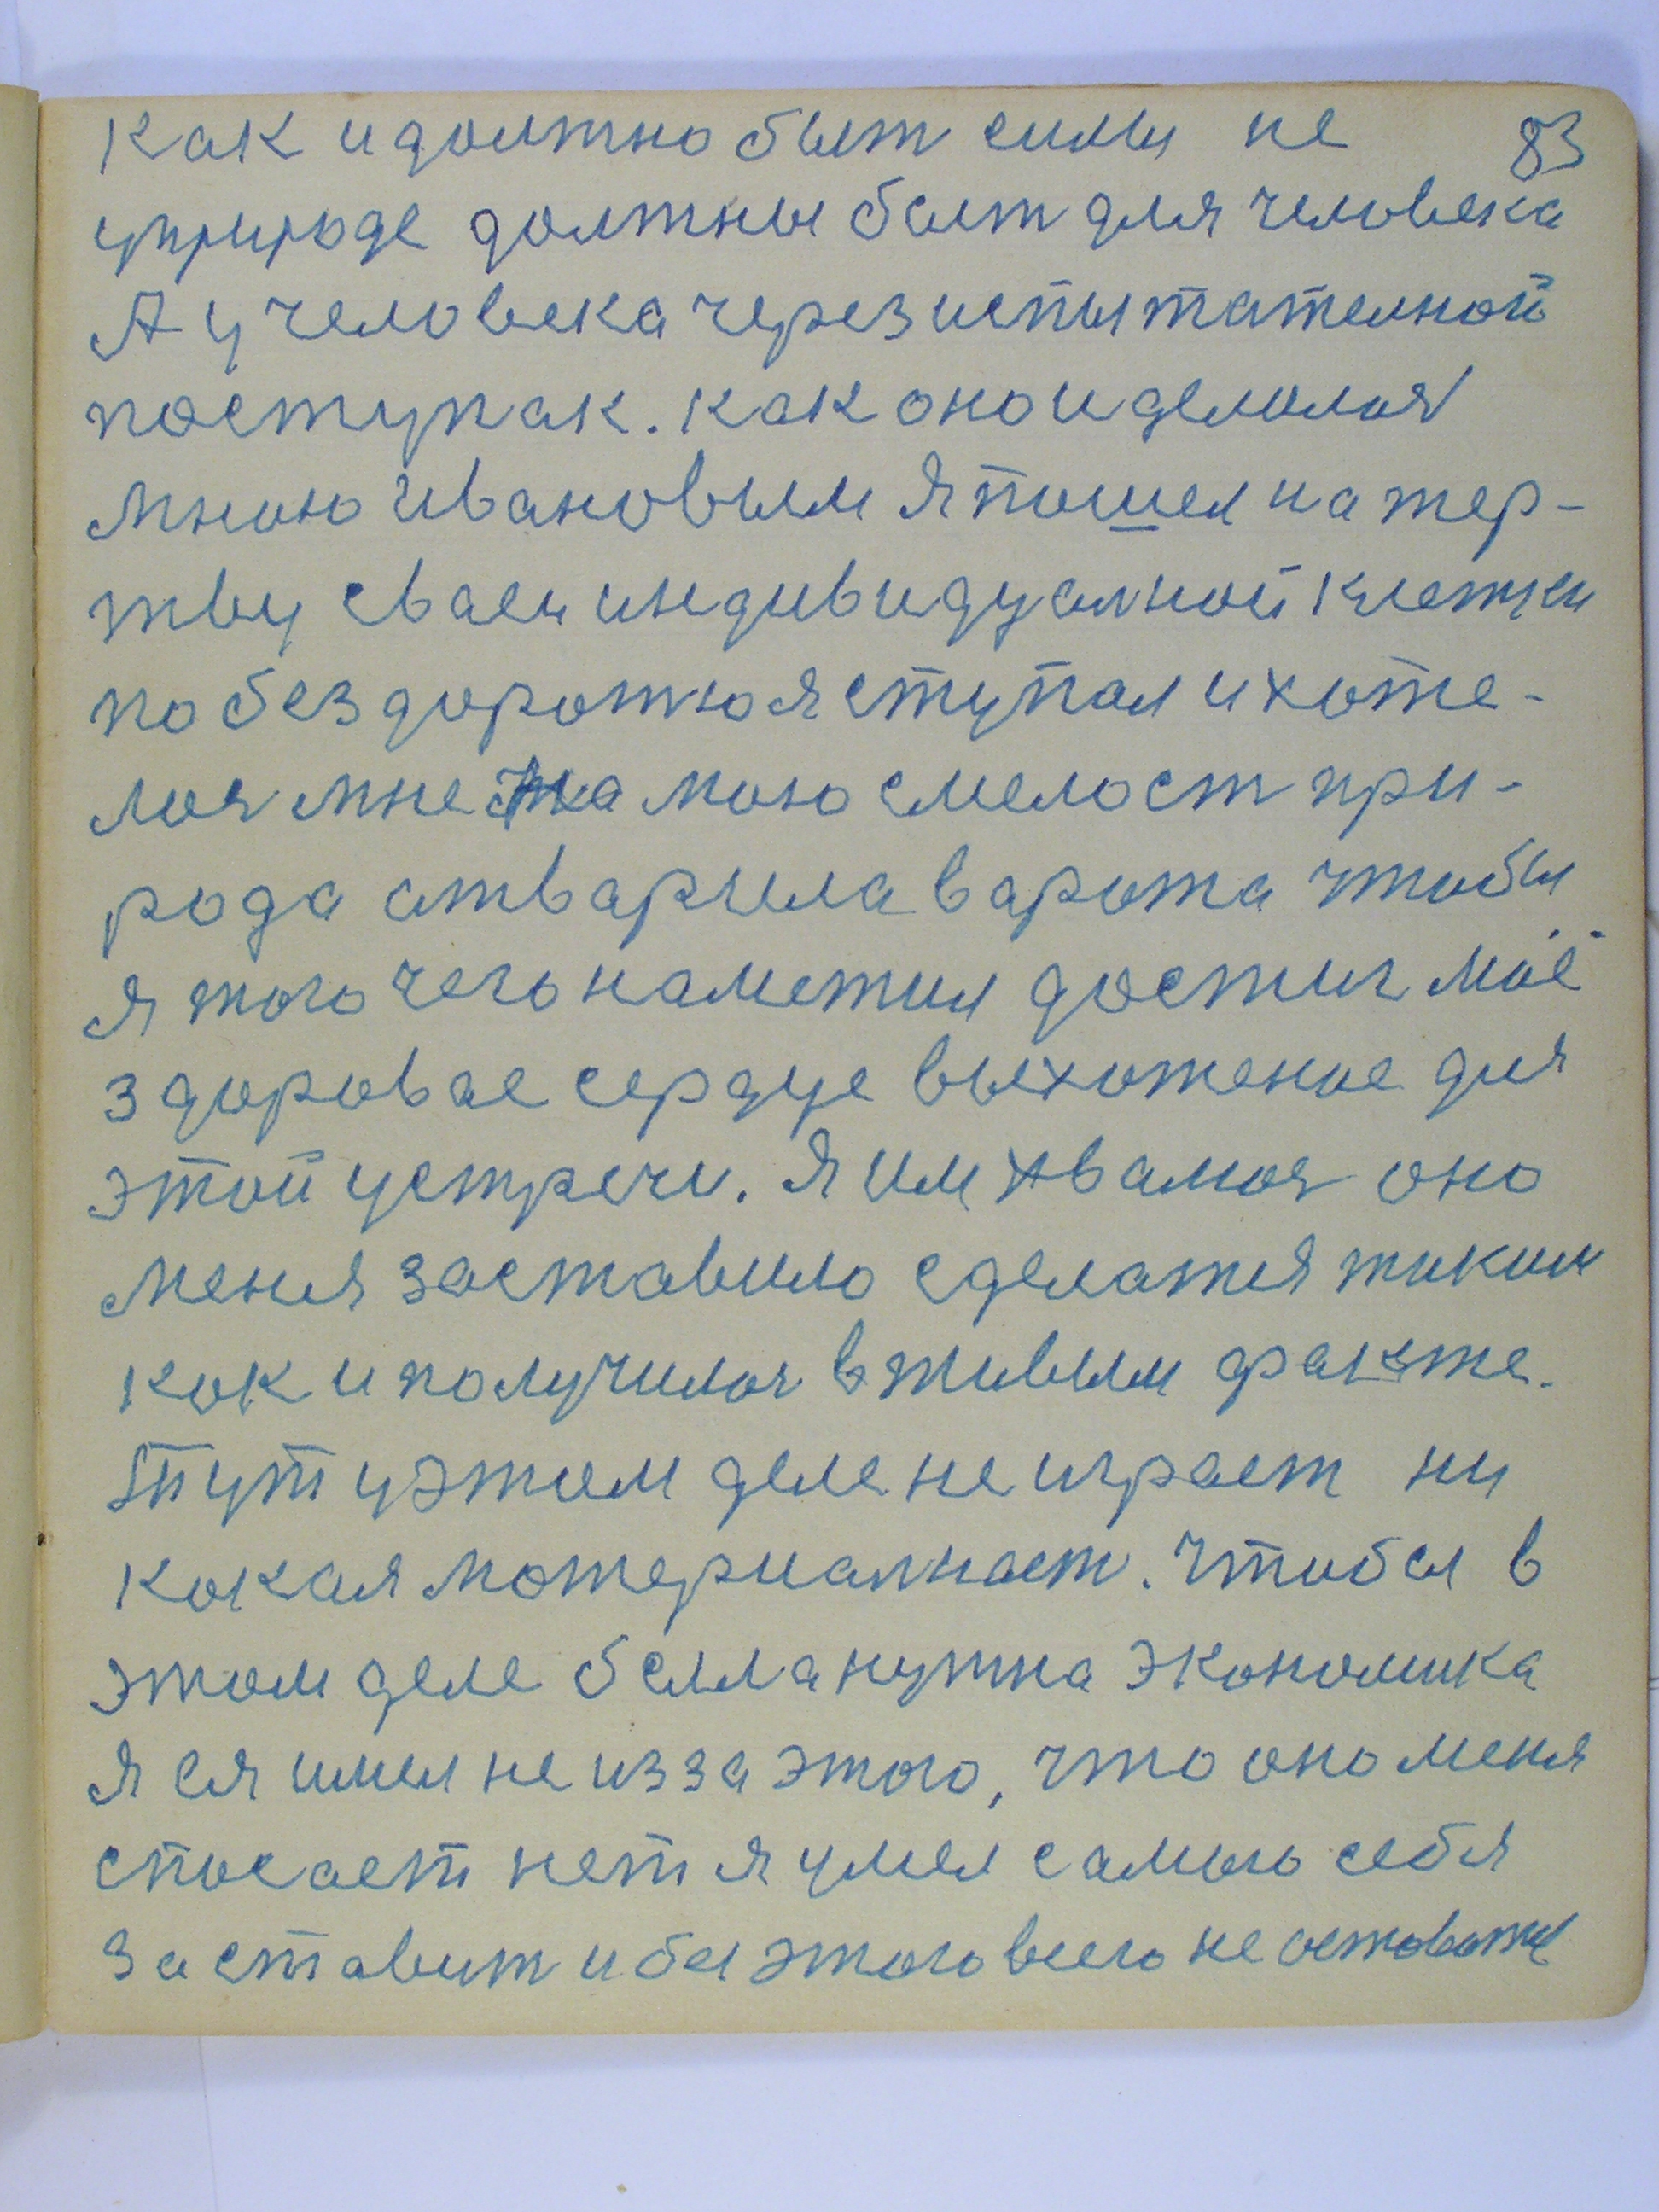 как и должно быт силы не 83
уприроде должны быт для человека
А у человека через испытателной
поступак. как оно и делалоя
мною Ивановым Я пошел на жер-
тву сваеи индивидуалной клетки
по бездорожю я ступал и хоте-
лоя мне на мою смелост при-
рода атварила варота чтобы
я того чего наметил достиг моё
здоровае сердце выхоженое для
этой устречи. Я им хвалюя оно
меня заставило сделатся таким
как и получилоя в живым факте.
Тут у этом деле не играет ни
какая материалност. Чтобы в
этом деле была нужна экономика
Я ея имел не из за этого, что оно меня
спасает нет я умел самого себя
заставит и бы этого всего не оставатся